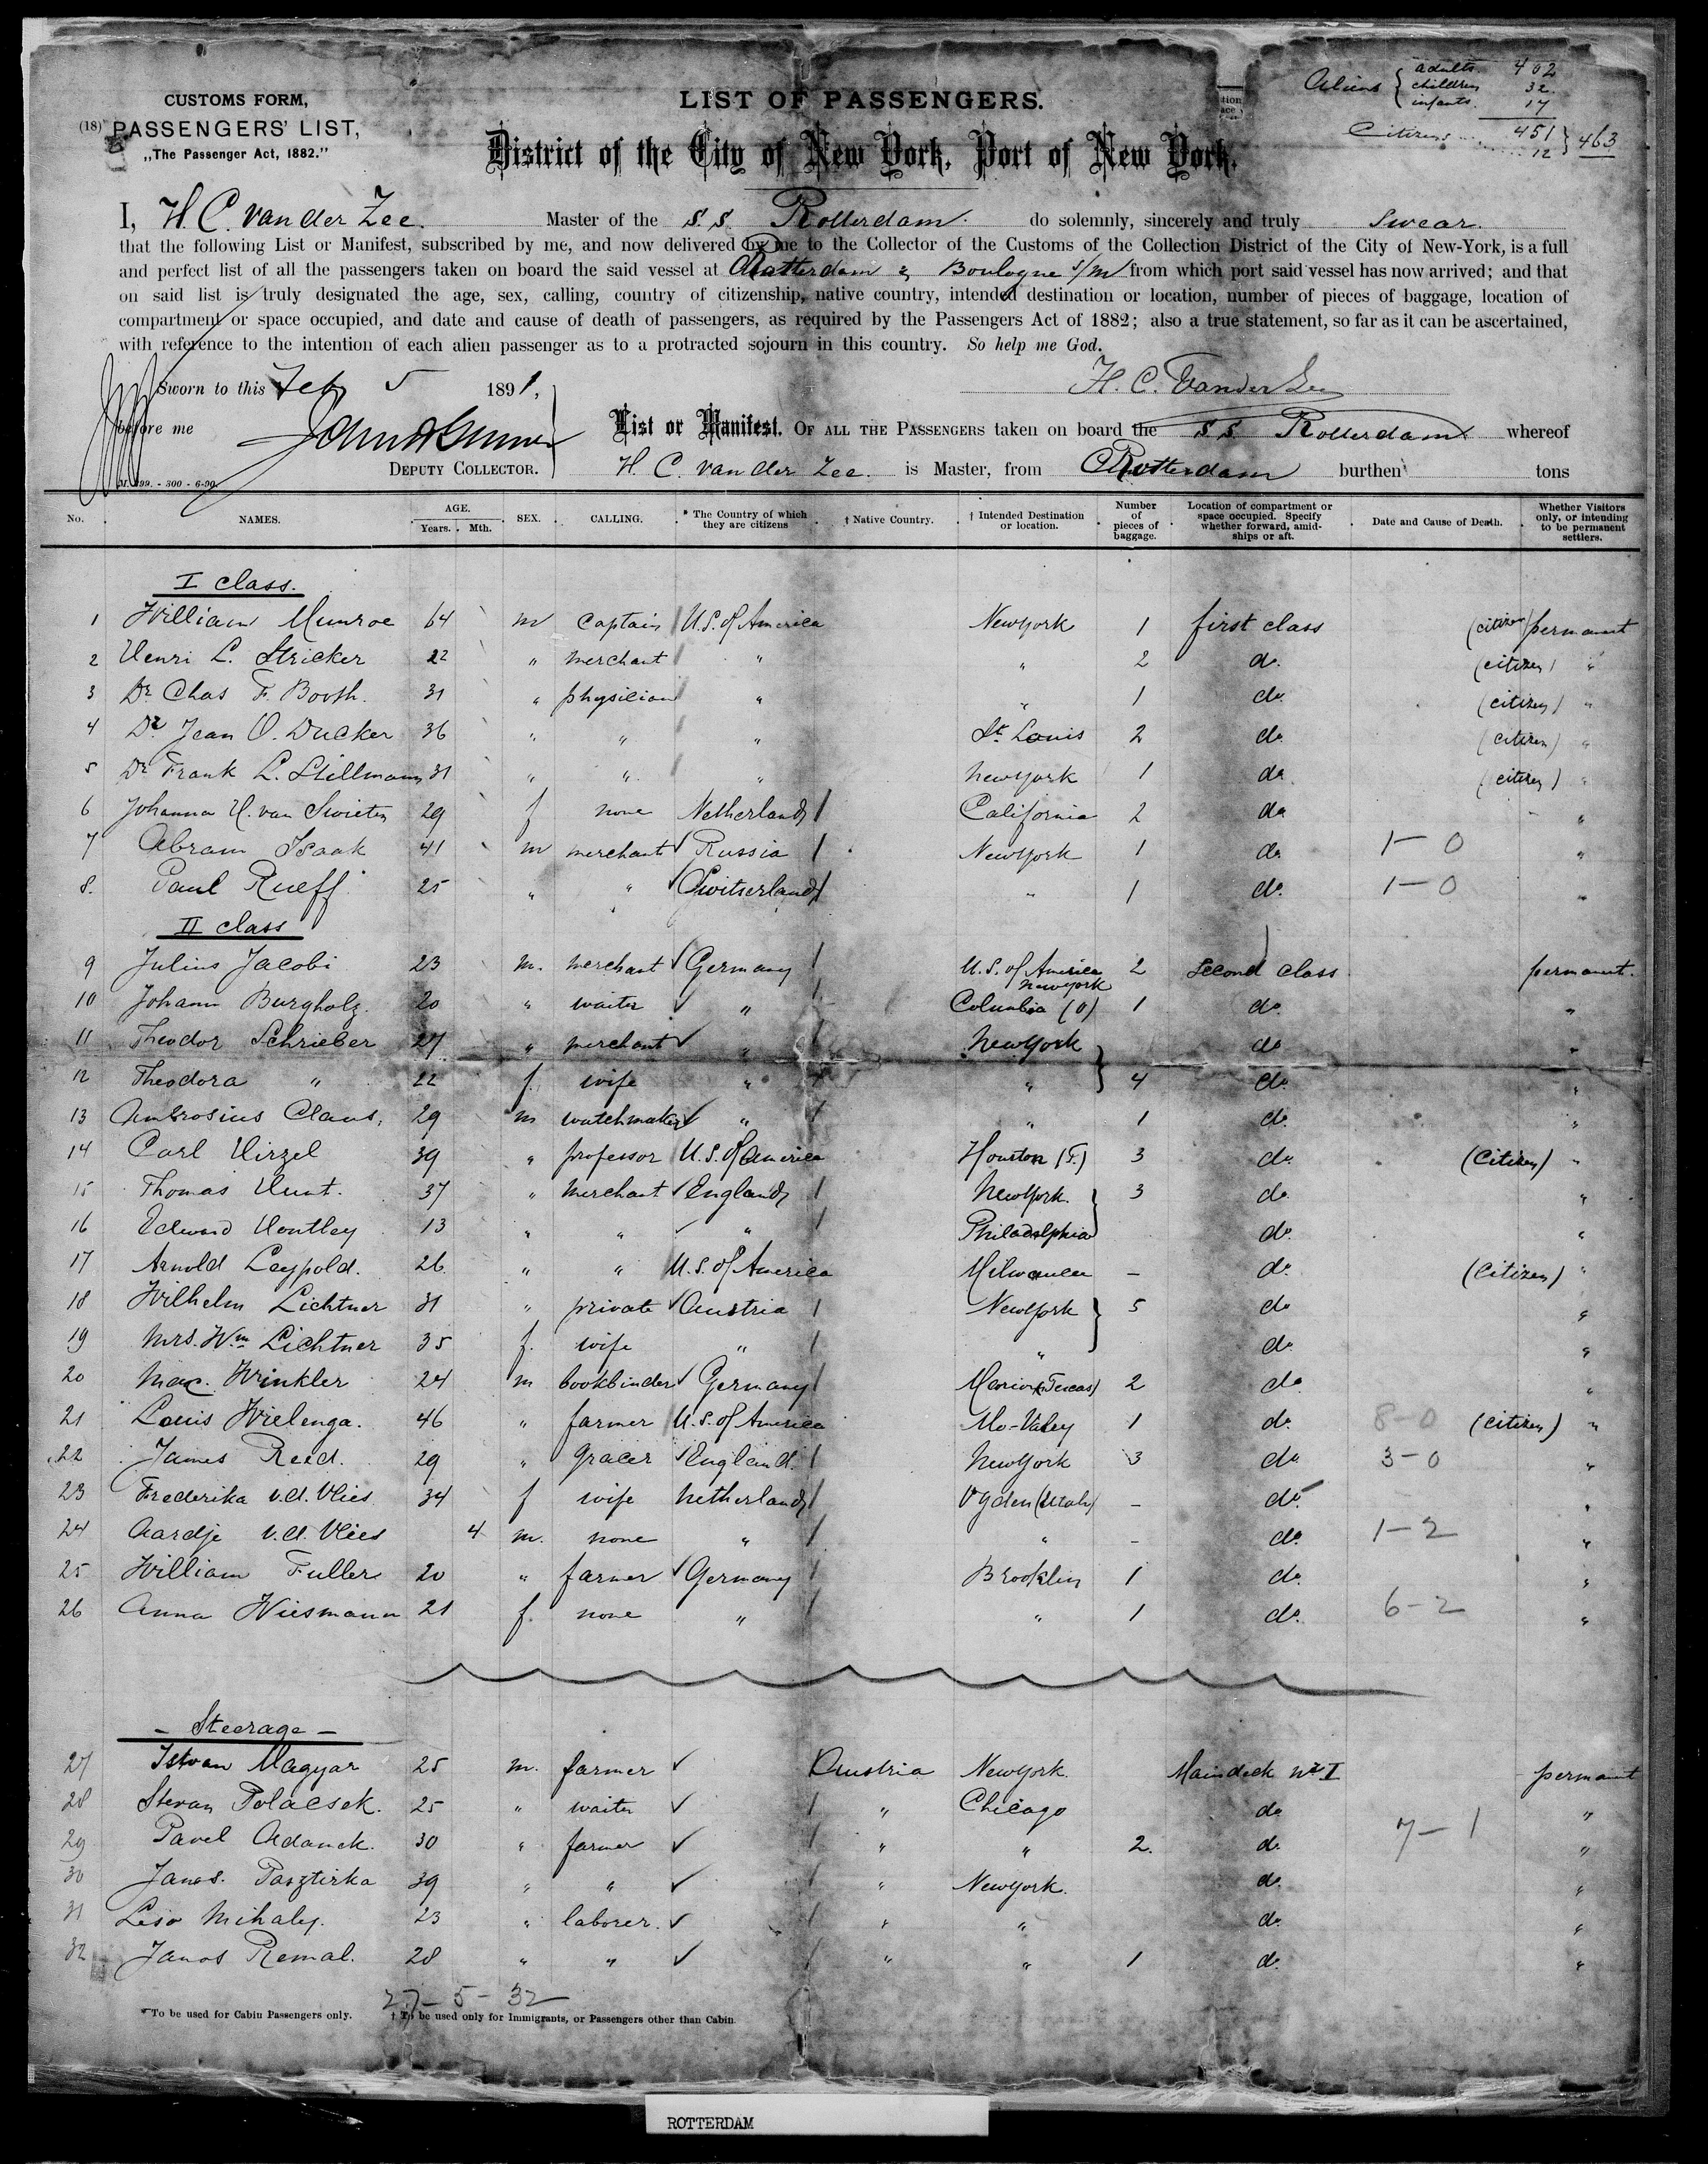 CUSTOMS FORM,
(18) PASSENGERS' LIST,
„The Passenger Act, 1882."
LIST OF PASSENGERS.
District of the City of New York, Port of New York.
Aliens { adults 402
children 32
infants 17
451 } 463
Citizens 12
I, H. C. van der Zee. Master of the S. S. Rotterdam. do solemnly, sincerely and truly swear.
that the following List or Manifest, subscribed by me, and now delivered by me to the Collector of the Customs of the Collection District of the City of New-York, is a full
and perfect list of all the passengers taken on board the said vessel at Rotterdam & Boulogne s/m from which port said vessel has now arrived; and that
on said list is truly designated the age, sex, calling, country of citizenship, native country, intended destination or location, number of pieces of baggage, location of
compartment or space occupied, and date and cause of death of passengers, as required by the Passengers Act of 1882; also a true statement, so far as it can be ascertained,
with reference to the intention of each alien passenger as to a protracted sojourn in this country. So help me God.
Sworn to this Feb 5 1891, H. C. Vander Zee
before me
DEPUTY COLLECTOR.
List or Manifest. OF ALL THE PASSENGERS taken on board the S S. Rotterdam whereof
H. C. van der Zee. is Master, from Rotterdam burthen tons
No. NAMES. AGE. Years. Mth. SEX. CALLING. * The Country of which they are citizens † Native Country. † Intended Destination or location. Number of pieces of baggage. Location of compartment or space occupied. Specify whether forward, amidships or aft. Date and Cause of Death. Whether Visitors only, or intending to be permanent settlers.
I class.
1 William Munroe 64 m captain U.S. of America New York 1 first class (citizen) permanent
2 Henri L. Stricker 22 " merchant " " 2 do. (citizen) "
3 Dr Chas F. Booth. 31 " physician " " 1 do. (citizen) "
4 Dr Jean O. Ducker 36 " " " St. Louis 2 do. (citizen) "
5 Dr Frank L. Stillmann 31 " " " New York 1 do. (citizen) "
6 Johanna H. van Swieten 29 f none Netherlands California 2 do. "
7 Abram Isaak 41 m merchant Russia New York 1 do. 1-0 "
8. Paul Rueff 25 " " Switserland " 1 do. 1-0 "
II class
9 Julius Jacobi 23 m. merchant Germany U.S. of America New york 2 second class permanent.
10 Johann Burgholz. 20 " waiter " Columbia (O) 1 do. "
11 Theodor Schrieber 27 " merchant " New York do "
12 Theodora " 22 f. wife " " } 4 do. "
13 Ambrosius Claus, 29 m watchmaker " " 1 do. "
14 Carl Hirzel 39 " professor U.S. of America Houston (T.) 3 do. (Citizen) "
15 Thomas Hunt. 37 " merchant England New York. 3 do. "
16 Edward Hontley 13 " " " Philadelphia do. "
17 Arnold Leypold. 26 " " U.S. of America Milwaukee - do. (Citizen) "
18 Wilhelm Lichtner 31 " private Austria New York } 5 do "
19 Mrs. Wm Lichtner 35 f. wife " " do. "
20 Max. Winkler 24 m bookbinder Germany Marion (Texas) 2 do "
21 Louis Wielenga. 46 " farmer U.S. of America Mo-Valey 1 do. 8-0 (citizen) "
22 James Reed. 29 " gracer England. New York 3 do 3-0 "
23 Frederika v.d. Vlies 34 f wife Netherlands Ogden (Utah) - do. "
24 Aardje v.d. Vlies 4 m. none " " - do. 1-2 "
25 William Fuller 20 " farmer Germany Brooklin 1 do. "
26 Anna Wiesmann 21 f. none " " 1 do. 6-2 "
- Steerage -
27 Istvan Magyar 25 m. farmer Austria New York. Maindeck No I permanent
28 Stevan Polacsek. 25 " waiter " Chicago do "
29 Pavel Adamek. 30 " farmer " " 2. do. 7-1 "
30 Janos. Pasztirka 39 " " " New York. do. "
31 Leso Mihaly. 23 " laborer. " " do. "
32 Janos Remal. 28 " " " " 1 do. "
27-5-32
* To be used for Cabin Passengers only. † To be used only for Immigrants, or Passengers other than Cabin.
ROTTERDAM